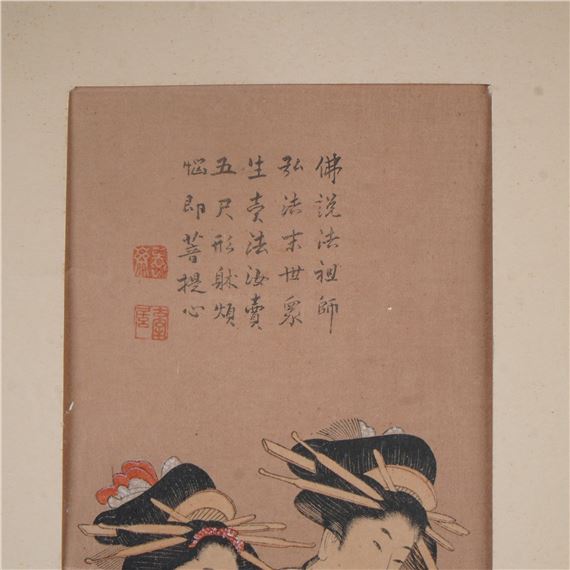 佛説法祖師
弘法末世衆
生賣法汝賣
五尺形躰煩
悩即菩提心